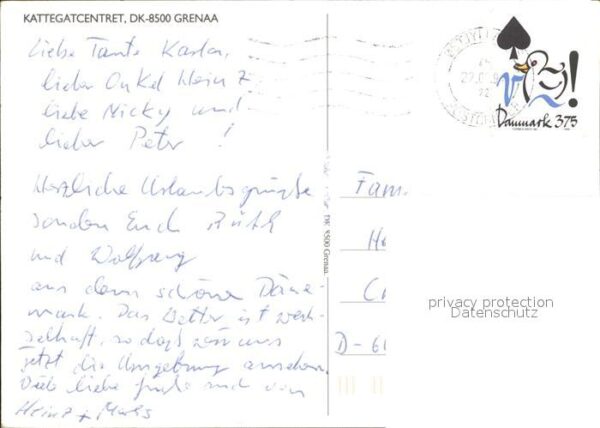 KATTEGATCENTRET, DK-8500 GRENAA
Liebe Tante Karla,
lieber Onkel Heinz
liebe Nicky und
lieber Peter !
Herzliche Urlaubsgrüße
senden Euch Ruth
und Wolfgang
aus dem schönen Däne-
mark. Das Wetter ist wech-
selhaft, so daß wir uns
jetzt die Umgebung ansehen.
Viele liebe Grüße auch von
Heinz +
DK 8500 Grenaa
Fam
D-6
Danmark 375
privacy protection
Datenschutz